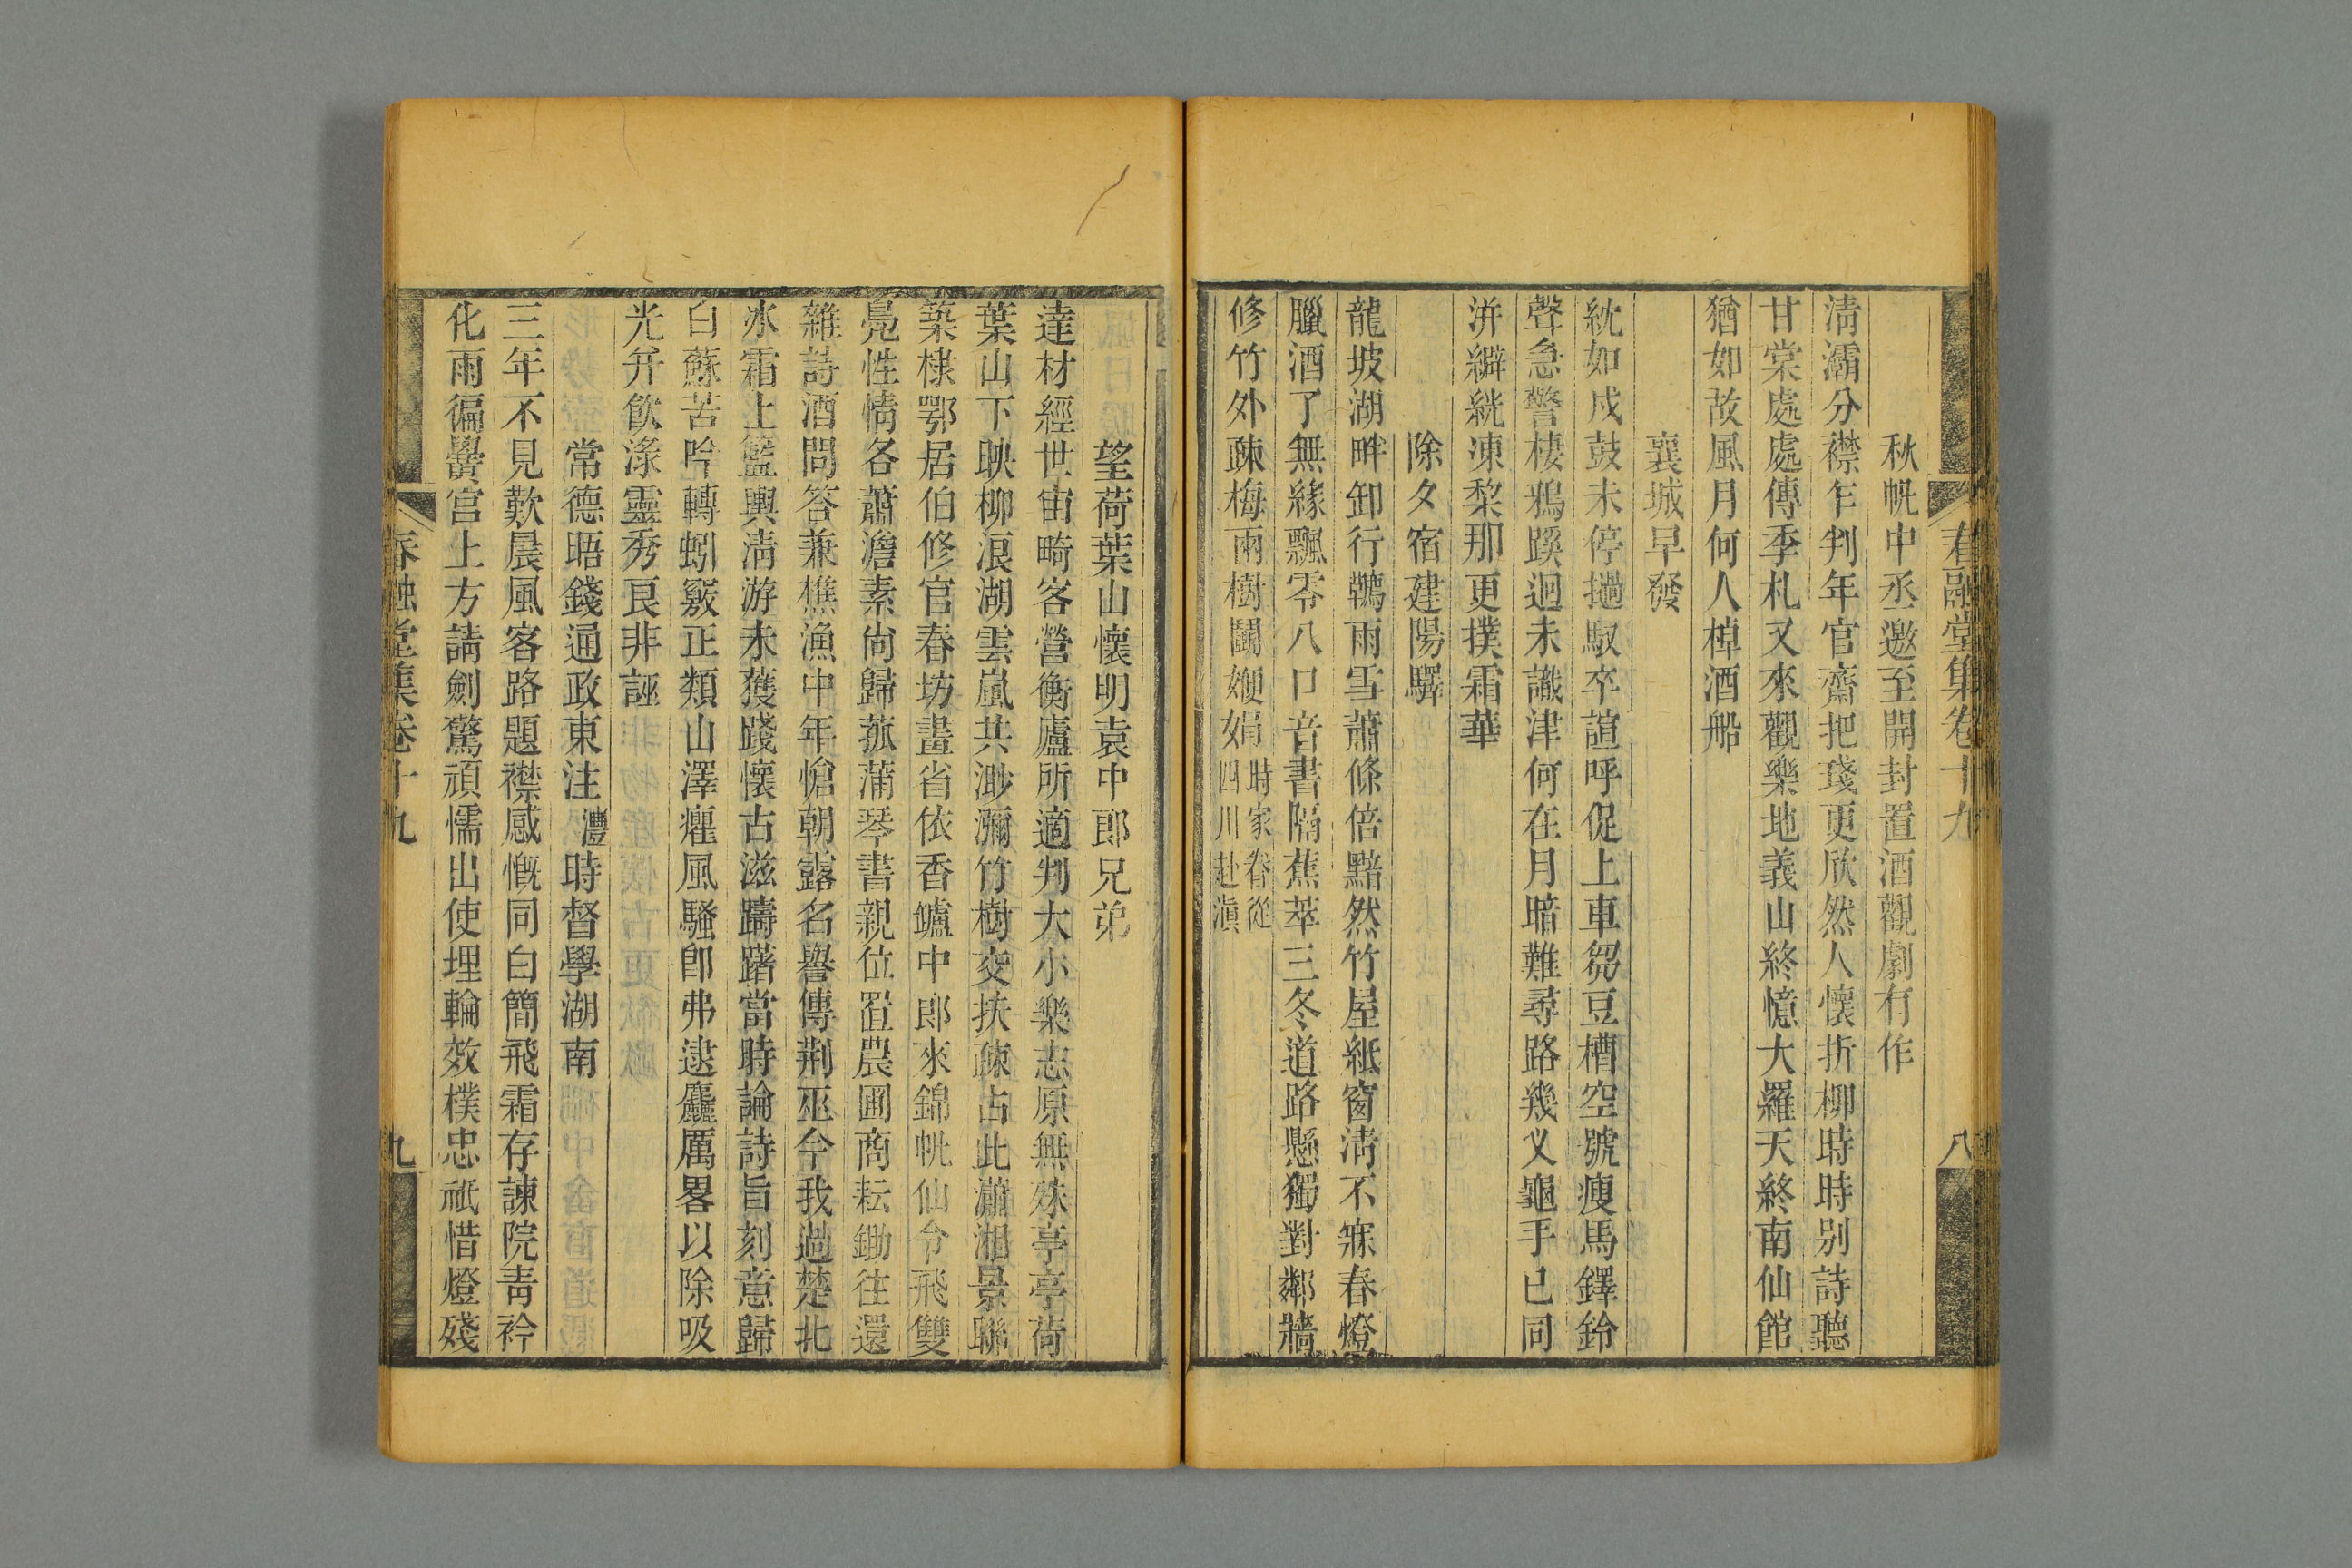 春融堂集卷十九
八
秋帆中丞邀至開封置酒觀劇有作
淸灞分襟乍判年官齋把琖更欣然人懷折柳時時别詩聽
甘棠處處傳季札又來觀樂地義山終憶大羅天終南仙館
猶如故風月何人棹酒船
襄城早發
紞如戍鼓未停撾馭卒諠呼促上車芻豆槽空號瘦馬鐸鈴
聲急警棲鴉蹊迴未識津何在月暗難尋路幾义龜手已同
洴澼絖凍棃那更撲霜華
除夕宿建陽驛
龍坡湖畔卸行韉雨雪蕭條倍黯然竹屋紙窗淸不寐春燈
臘酒了無緣飄零八口音書隔蕉萃三冬道路懸獨對鄰牆
修竹外疎梅兩樹鬭㛹娟時家眷從四川赴滇
望荷葉山懷明袁中郎兄弟
達材經世宙畸客營衡廬所適判大小樂志原無殊亭亭荷
葉山下映柳浪湖雲嵐共渺瀰竹樹交扶疎占此瀟湘景聯
築棣鄂居伯修官春坊畫省依香鑪中郎來錦帆仙令飛雙
鳧性情各蕭澹素尙歸菰蒲琴書親位置農圃商耘鋤往還
雜詩酒問答兼樵漁中年愴朝露名譽傳荆巫今我過楚北
氷霜上籃輿淸游未獲踐懷古滋躊躇當時論詩旨刻意歸
白蘇苦吟轉蚓竅正類山澤癯風騷卽弗逮麤厲畧以除吸
光并飮淥靈秀良非誣
常德晤錢通政東注灃時督學湖南
三年不見歎晨風客路題襟感慨同白簡飛霜存諫院靑衿
化雨徧黌宫上方請劍驚頑懦出使埋輪效樸忠祇惜燈殘
春融堂集卷十九
九